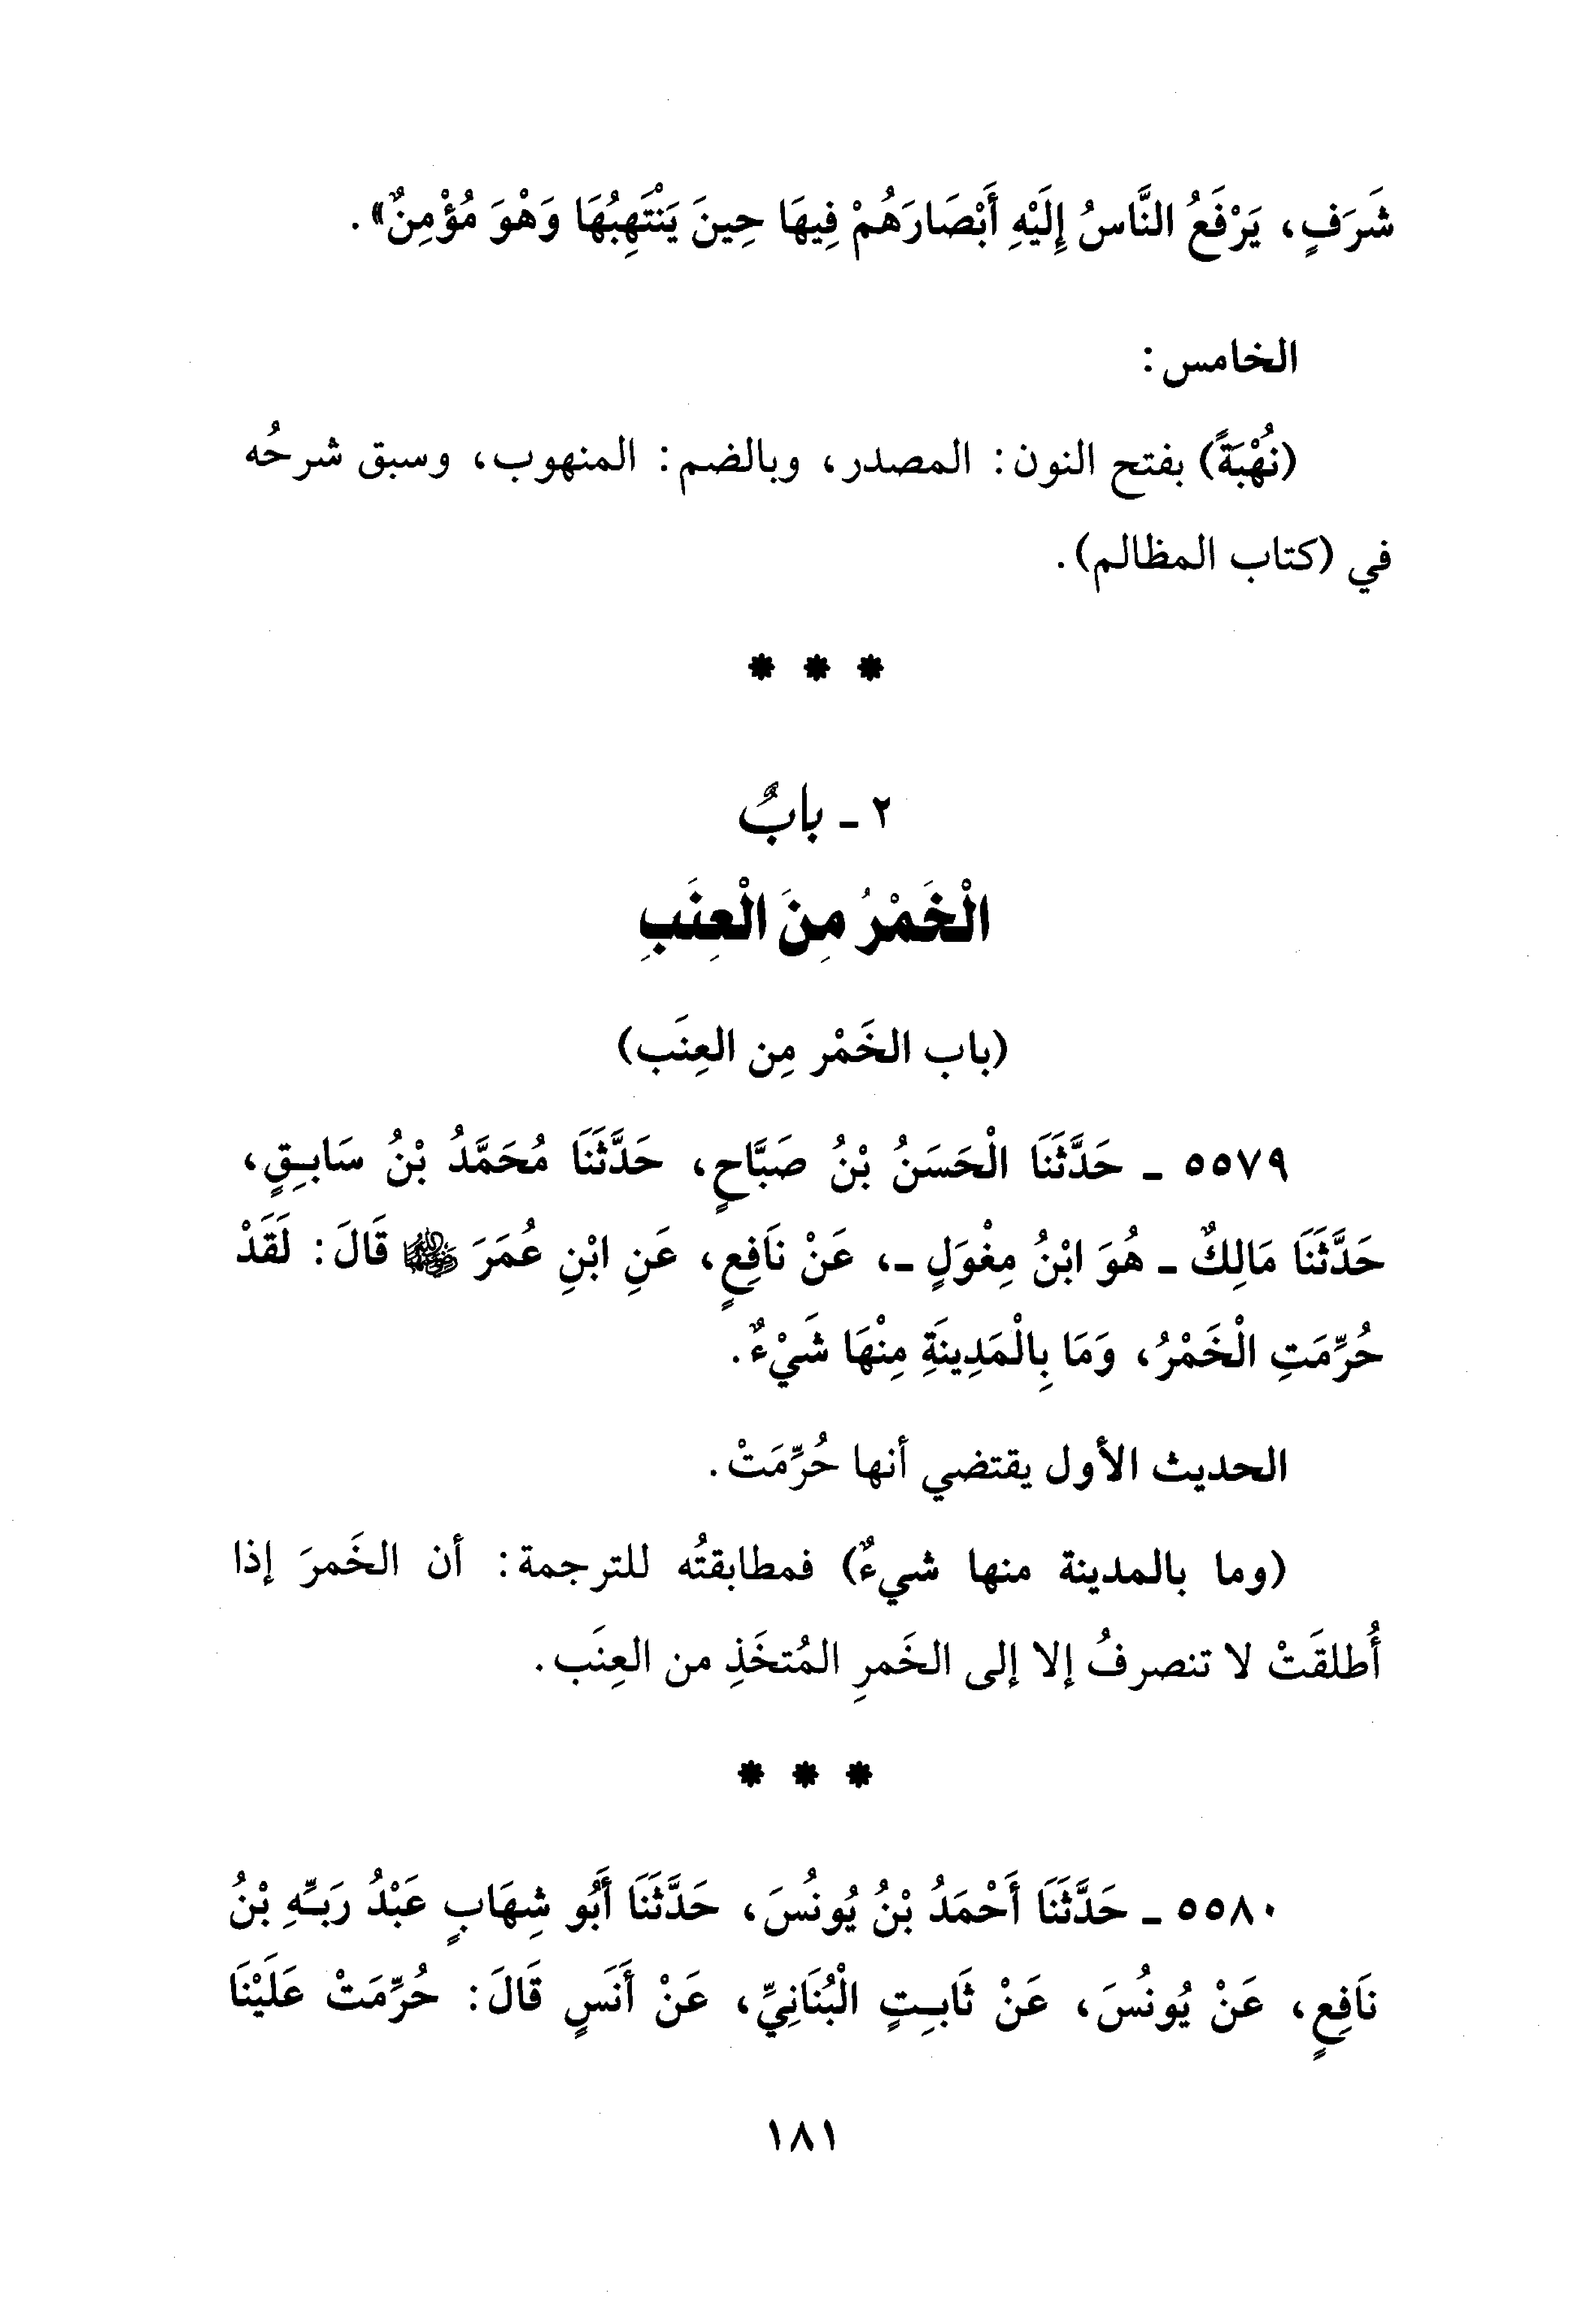 شَرَفٍ، يَرْفَعُ النَّاسُ إِلَيْهِ أَبْصَارَهُمْ فِيهَا حِينَ يَنْتَهِبُهَا وَهْوَ مُؤْمِنٌ».
الخامس:
(نُهْبَةً) بفتح النون: المصدر، وبالضم: المنهوب، وسبق شرحُه
في (كتاب المظالم).
* * *
٢ - بابٌ
الْخَمْرُ مِنَ الْعِنَبِ
(باب الخَمْر مِن العِنَب)
٥٥٧٩ - حَدَّثَنَا الْحَسَنُ بْنُ صَبَّاحٍ، حَدَّثَنَا مُحَمَّدُ بْنُ سَابِقٍ،
حَدَّثَنَا مَالِكٌ - هُوَ ابْنُ مِغْوَلٍ -، عَنْ نَافِعٍ، عَنِ ابْنِ عُمَرَ رضي الله عنهما قَالَ: لَقَدْ
حُرِّمَتِ الْخَمْرُ، وَمَا بِالْمَدِينَةِ مِنْهَا شَيْءٌ.
الحديث الأول يقتضي أنها حُرِّمَتْ.
(وما بالمدينة منها شيءٌ) فمطابقتُه للترجمة: أن الخَمرَ إذا
أُطلقَتْ لا تنصرفُ إلا إلى الخَمرِ المُتخَذِ من العِنَب.
* * *
٥٥٨٠ - حَدَّثَنَا أَحْمَدُ بْنُ يُونُسَ، حَدَّثَنَا أَبُو شِهَابٍ عَبْدُ رَبِّهِ بْنُ
نَافِعٍ، عَنْ يُونُسَ، عَنْ ثَابِتٍ الْبُنَانِيِّ، عَنْ أَنَسٍ قَالَ: حُرِّمَتْ عَلَيْنَا
١٨١